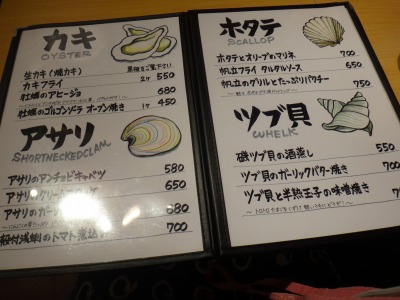 カキ
OYSTER
生カキ(焼カキ) 黒板をご覧下さい
カキフライ 2ケ 550
牡蠣のアヒージョ 680
牡蠣のゴルゴンゾラ オーブン焼き 1ケ 450
アサリ
SHORTNECKEDCLAM
アサリのアンチョビキャベツ 580
アサリのクリーム 650
アサリのガーリック 680
殻付浅蜊のトマト煮込 700
ホタテ
SCALLOP
ホタテとオリーブのマリネ 700
帆立フライ タルタルソース 650
帆立のグリルとたっぷりパクチー 750
ツブ貝
WHELK
磯ツブ貝の酒蒸し 550
ツブ貝のガーリックバター焼き 700
ツブ貝と半熟玉子の味噌焼き